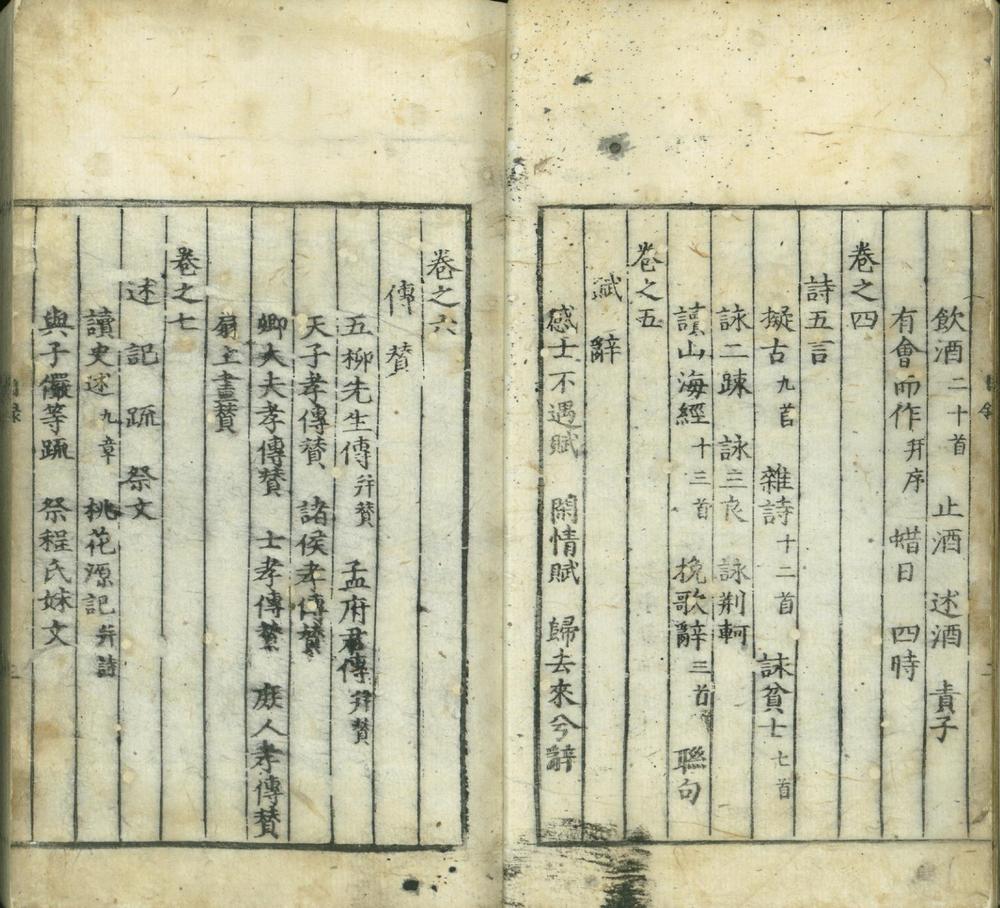 飲酒二十首　止酒　述酒　責子
有會而作并序　蜡日　四時
卷之四
詩五言
擬古九首　雜詩十二首　詠貧士七首
詠二踈　詠三良　詠荆軻
讀山海經十三首　挽歌辭三首　聯句
卷之五
賦辭
感士不遇賦　閑情賦　歸去來兮辭
卷之六
傳賛
五柳先生傳并賛　孟府君傳并賛
天子孝傳賛　諸侯孝傳賛
卿大夫孝傳賛　士孝傳賛　庶人孝傳賛
扇上畫賛
卷之七
述記疏祭文
讀史述九章　桃花源記并詩
與子儼等疏　祭程氏妹文